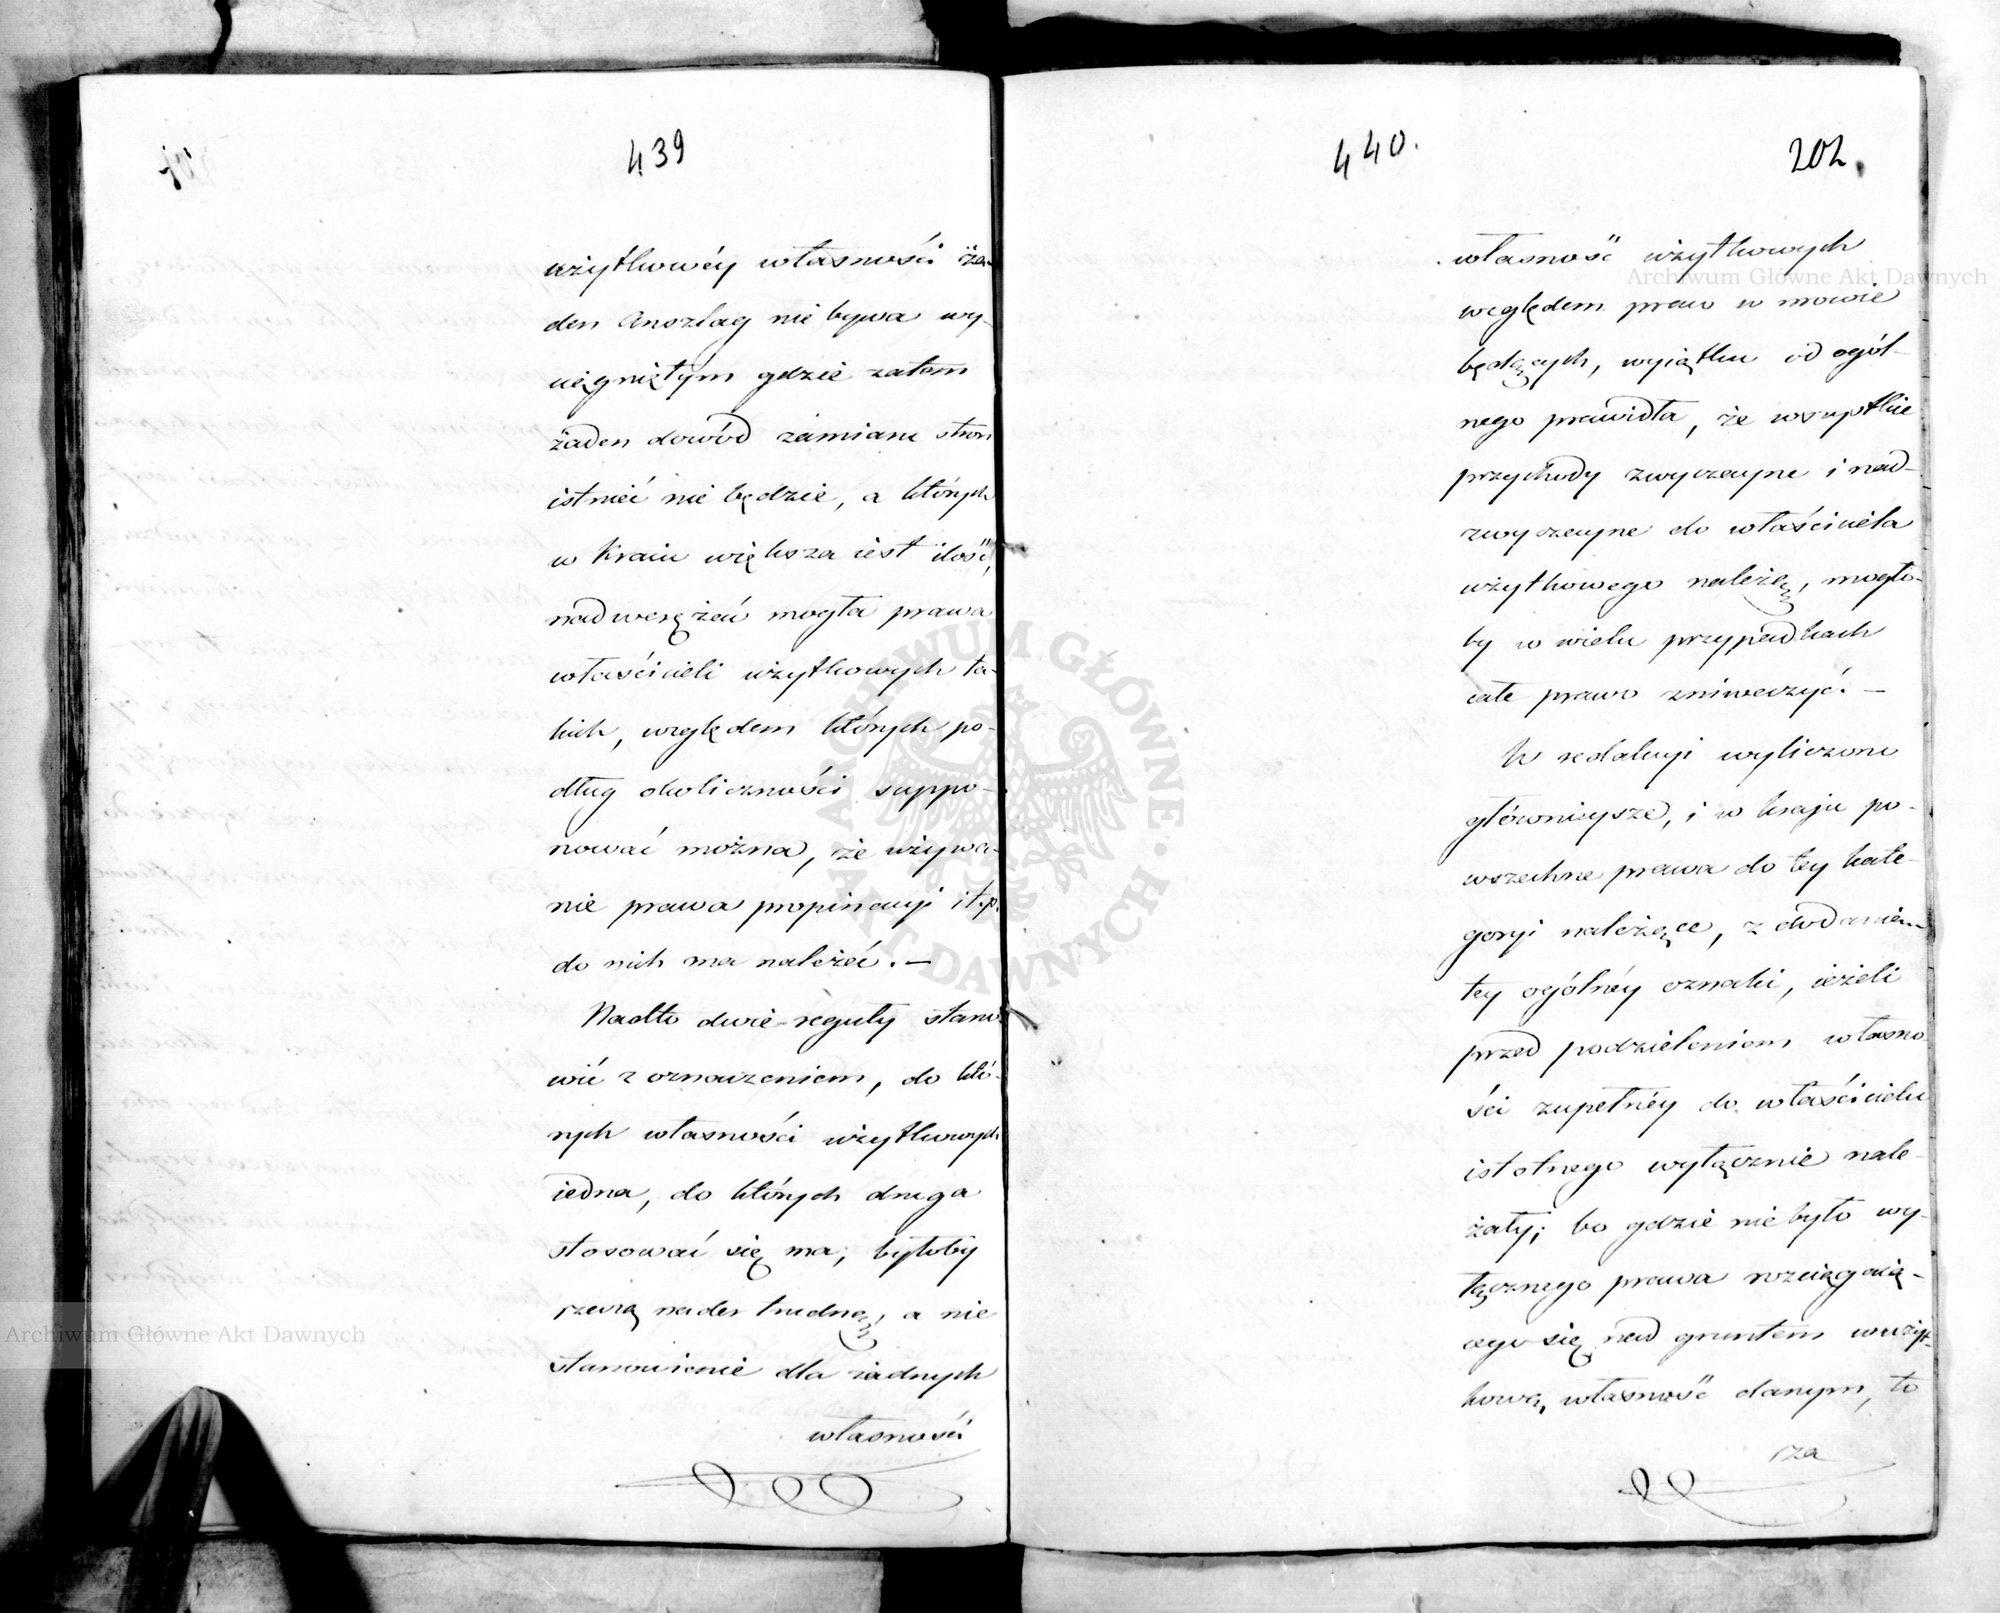 439
użytkowéy własności ża-
den Anszlag nie bywa wy-
ciągniętym gdzie zatem
żaden dowód zamiaru stron
istnieć nie będzie, a których
w Kraiu większa iest ilość,
nadwerężać mogła prawa
właścicieli użytkowych ta-
kich, względem których po-
dług okoliczności suppo-
nować można, że używa-
nie prawa propinacyi itp.
do nich ma należeć. —
Nadto dwie reguły stano-
wić z oznaczeniem, do któ-
rych własności użytkowych
iedna, do których druga
stosować się ma, byłoby
rzeczą nader trudną, a nie
stanowienie dla żadnych
własności
440.
202.
własność użytkowych
względem praw w mowie
będących, wyiątku od ogól-
nego prawidła, że wszystkie
przychody zwyczayne i nad-
zwyczayne do właściciela
użytkowego należą, mogło-
by w wielu przypadkach
całe prawo zniweczyć. —
W redakcyi wyliczono
głównieysze, i w kraju po-
wszechne prawa do tey kate-
goryi należące, z dodaniem
tey ogólnéy oznaki, ieżeli
przed podzieleniem własno-
ści zupełnéy do właściciela
istotnego wyłącznie nale-
żały; bo gdzie nie było wy-
łącznego prawa rozciągaią-
cego się nad gruntem w użyt-
kową własność danym, to
rza
Archiwum Główne Akt Dawnych
Archiwum Główne Akt Dawnych
ARCHIWUM GŁÓWNE AKT DAWNYCH